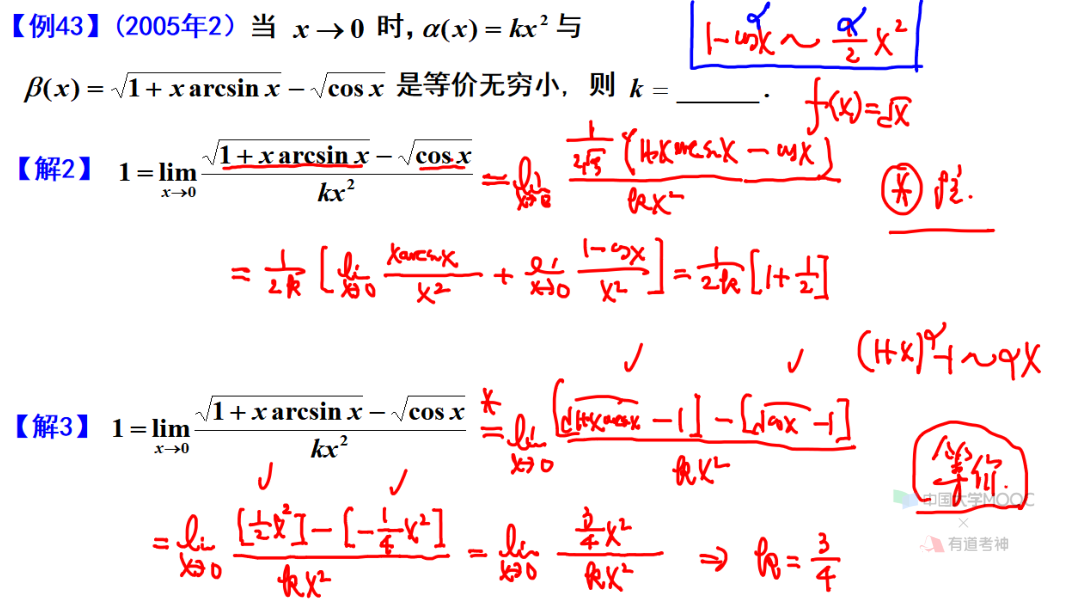 【例43】(2005年2) 当 x→0 时, α(x) = kx² 与
1-cos^α x ~ α/2 x²
β(x) = √(1 + x arcsin x) − √(cos x) 是等价无穷小, 则 k = ______.
f(x)=√x
【解2】 1 = lim_{x→0} (√(1 + x arcsin x) − √(cos x))/(kx²) = lim_{x→0} (1/(2√ξ) (1+x arcsin x − cos x))/(kx²)
= 1/(2k) [lim_{x→0} (x arcsin x)/x² + lim_{x→0} (1-cos x)/x²] = 1/(2k) [1+1/2]
(1+x)^α -1 ~ αx
【解3】 1 = lim_{x→0} (√(1 + x arcsin x) − √(cos x))/(kx²) * = lim_{x→0} ([√(1+x arcsin x) −1] − [√(cos x) −1])/(kx²)
等价.
中国大学MOOC
×
有道考神
= lim_{x→0} ([1/2 x²] − [−1/4 x²])/(kx²) = lim_{x→0} (3/4 x²)/(kx²) ⇒ k = 3/4